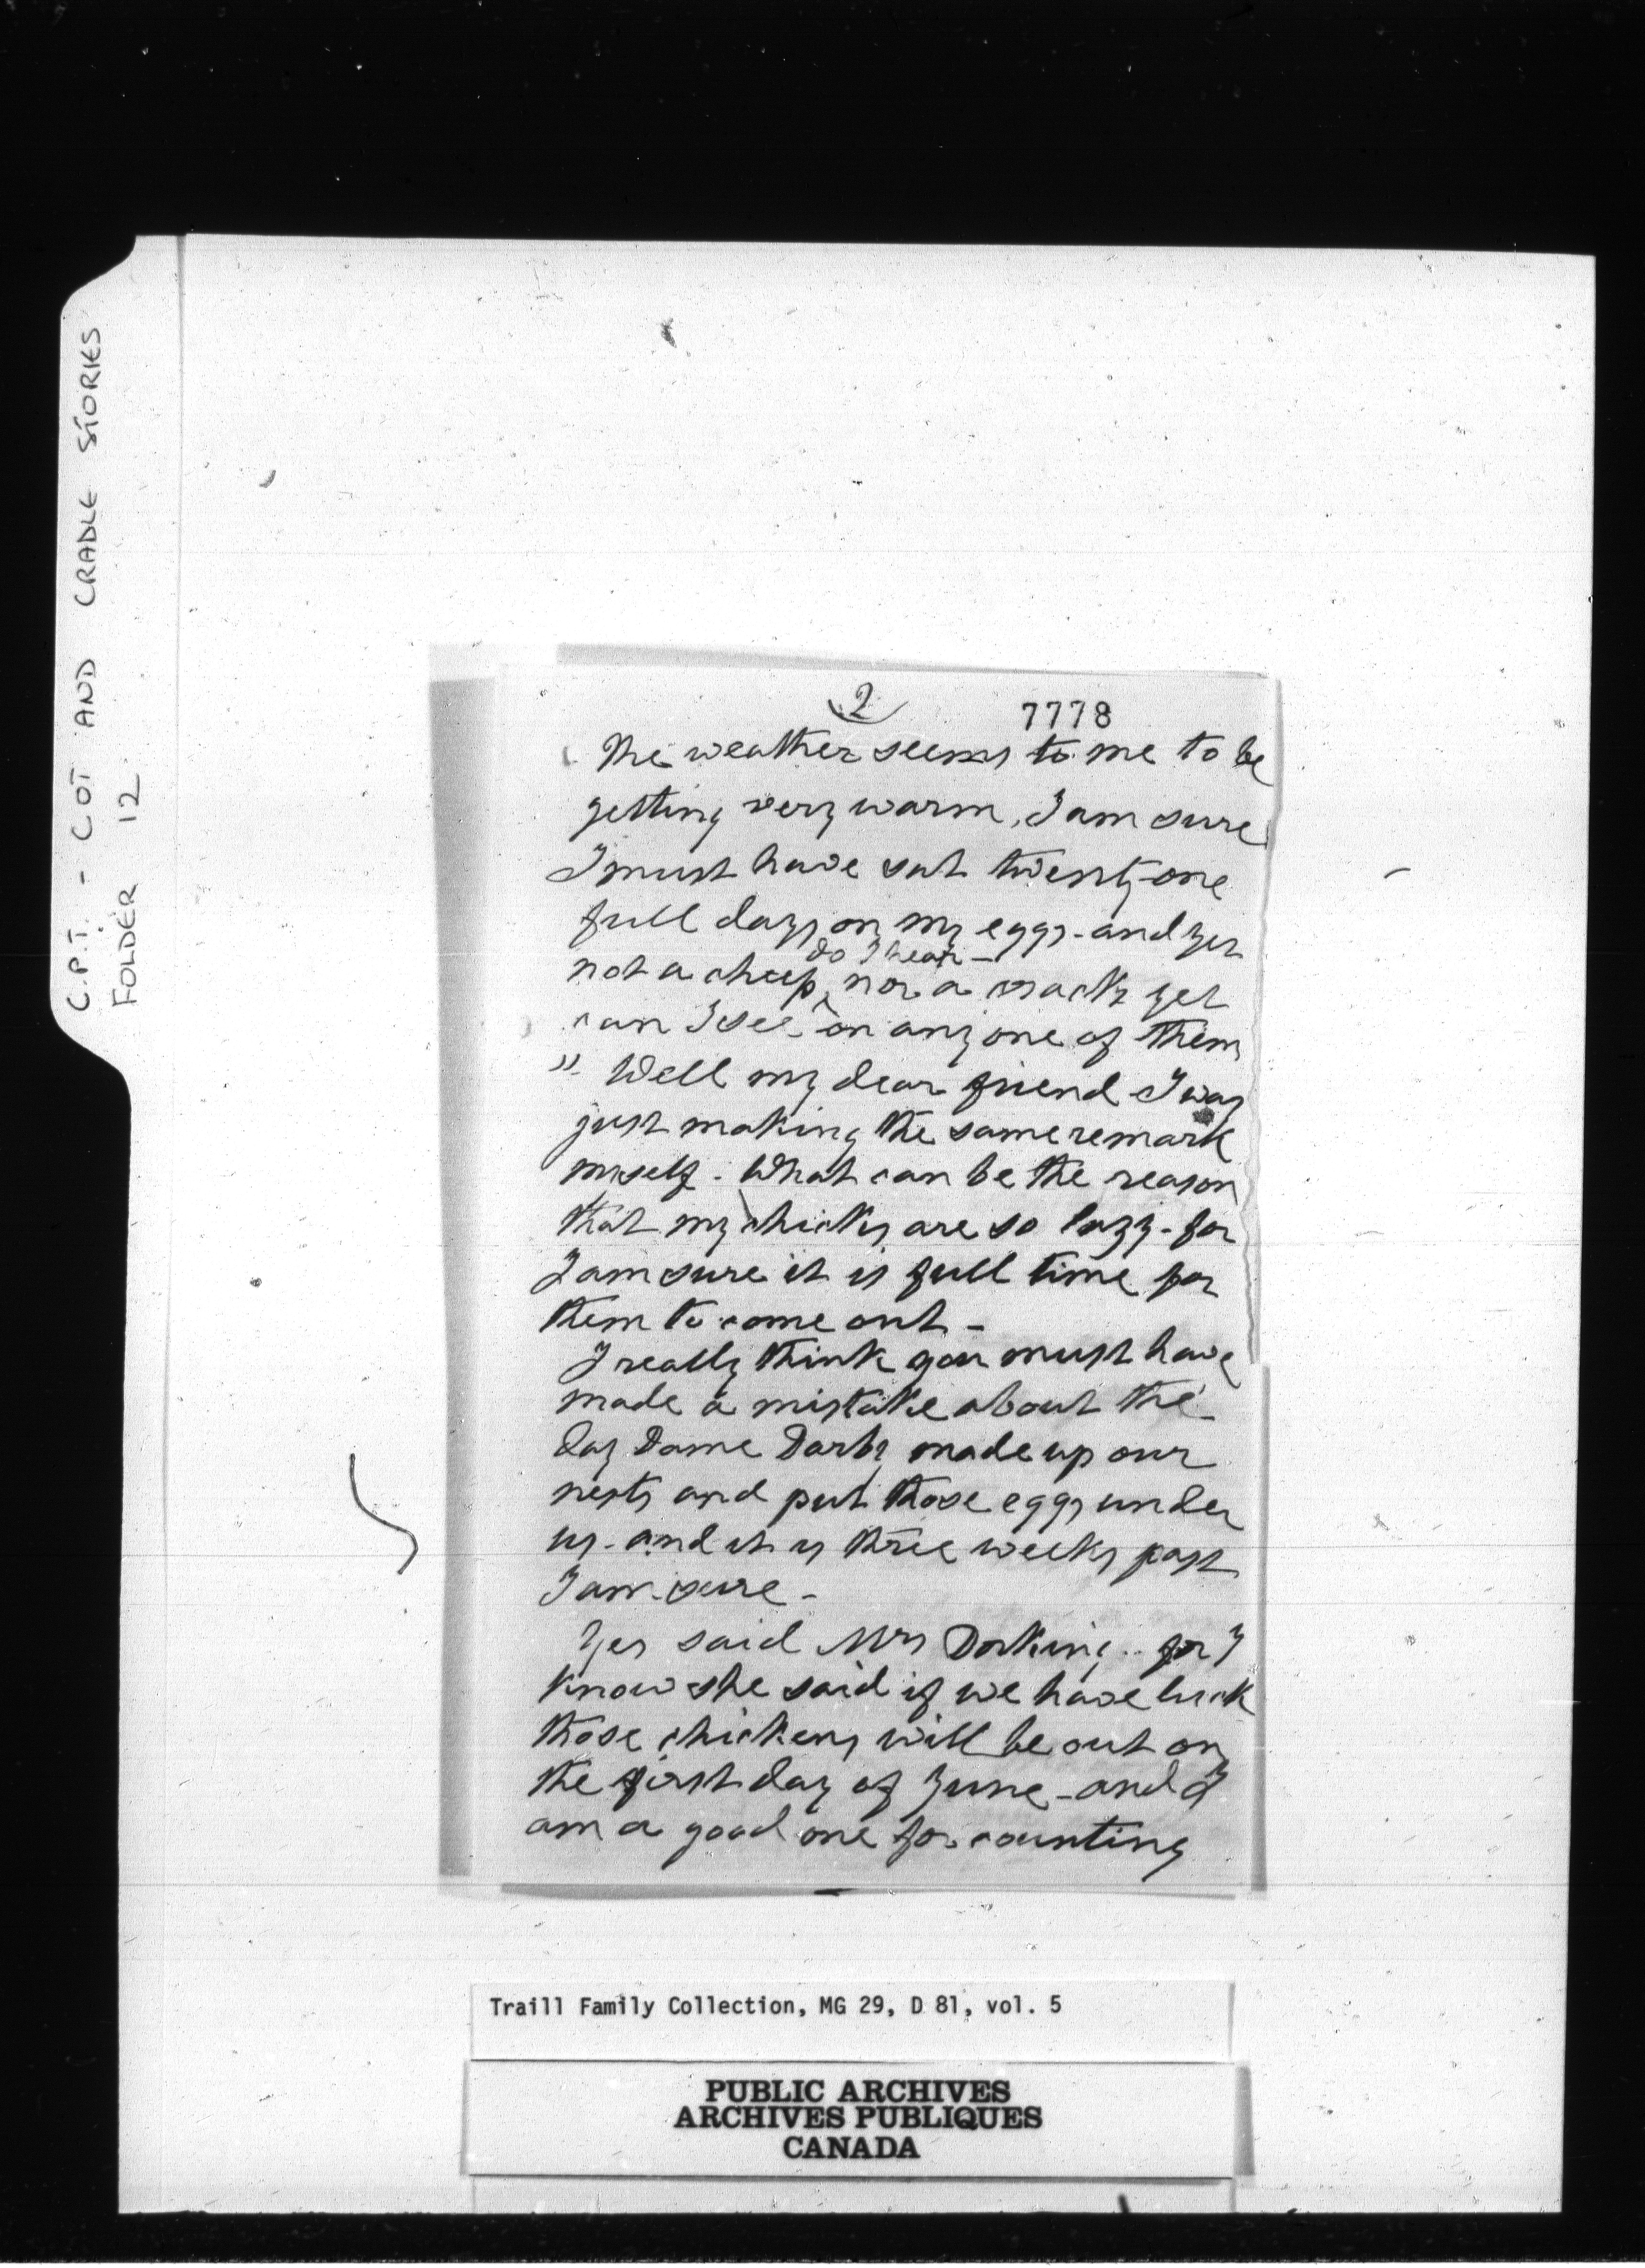 C.P.T. - COT AND CRADLE STORIES
FOLDER 12
2
7778
The weather seems to me to be
getting very warm, I am sure
I must have sat twenty-one
full days on my eggs - and yet
do I hear -
not a cheep, nor a crack yet
can I see on any one of them
" Well my dear friend I was
just making the same remark
myself. What can be the reason
that my chicks are so lazy - for
I am sure it is full time for
them to come out -
I really think you must have
made a mistake about the
day Dame Darby made up our
nests and put those eggs under
us - and it is three weeks past
I am sure -
Yes said Mrs Dorking .. for I
know she said if we have luck
those chickens will be out on
the first day of June - and I
am a good one for counting
Traill Family Collection, MG 29, D 81, vol. 5
PUBLIC ARCHIVES
ARCHIVES PUBLIQUES
CANADA